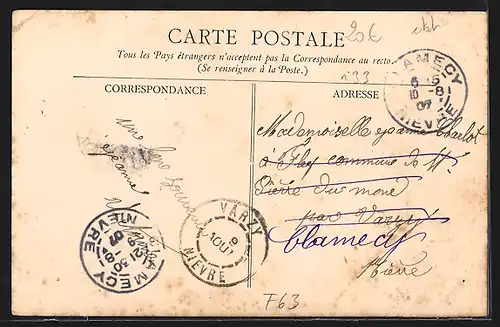 20€
CARTE POSTALE
Tous les Pays étrangers n'acceptent pas la Correspondance au recto.
(Se renseigner à la Poste.)
n°33
CORRESPONDANCE
ADRESSE
CLAMECY
6-5
10-8
07
NIEVRE
une
Mademoiselle Jeanne Charlot
à Flez commune de St
Pierre du mont
par Varzy
Clamecy
Nièvre
VARZY
9
AOUT
NIEVRE
CLAMECY
NIEVRE
F63